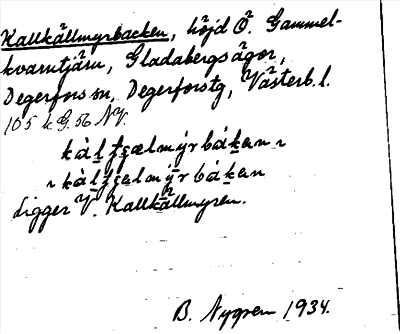 Kallkällmyrbacken, höjd Ö. Gammel-
kvarntjärn, Gladabergsägor,
Degerfors sn, Degerforstg, Västerb. l.
105 k G. 56 NV.
kàl̲ʃɕælmýrbák̲an
kàl̲ʃɕælmýrbák̲an
Ligger V. Kallkällmyren.
B. Nygren 1934.